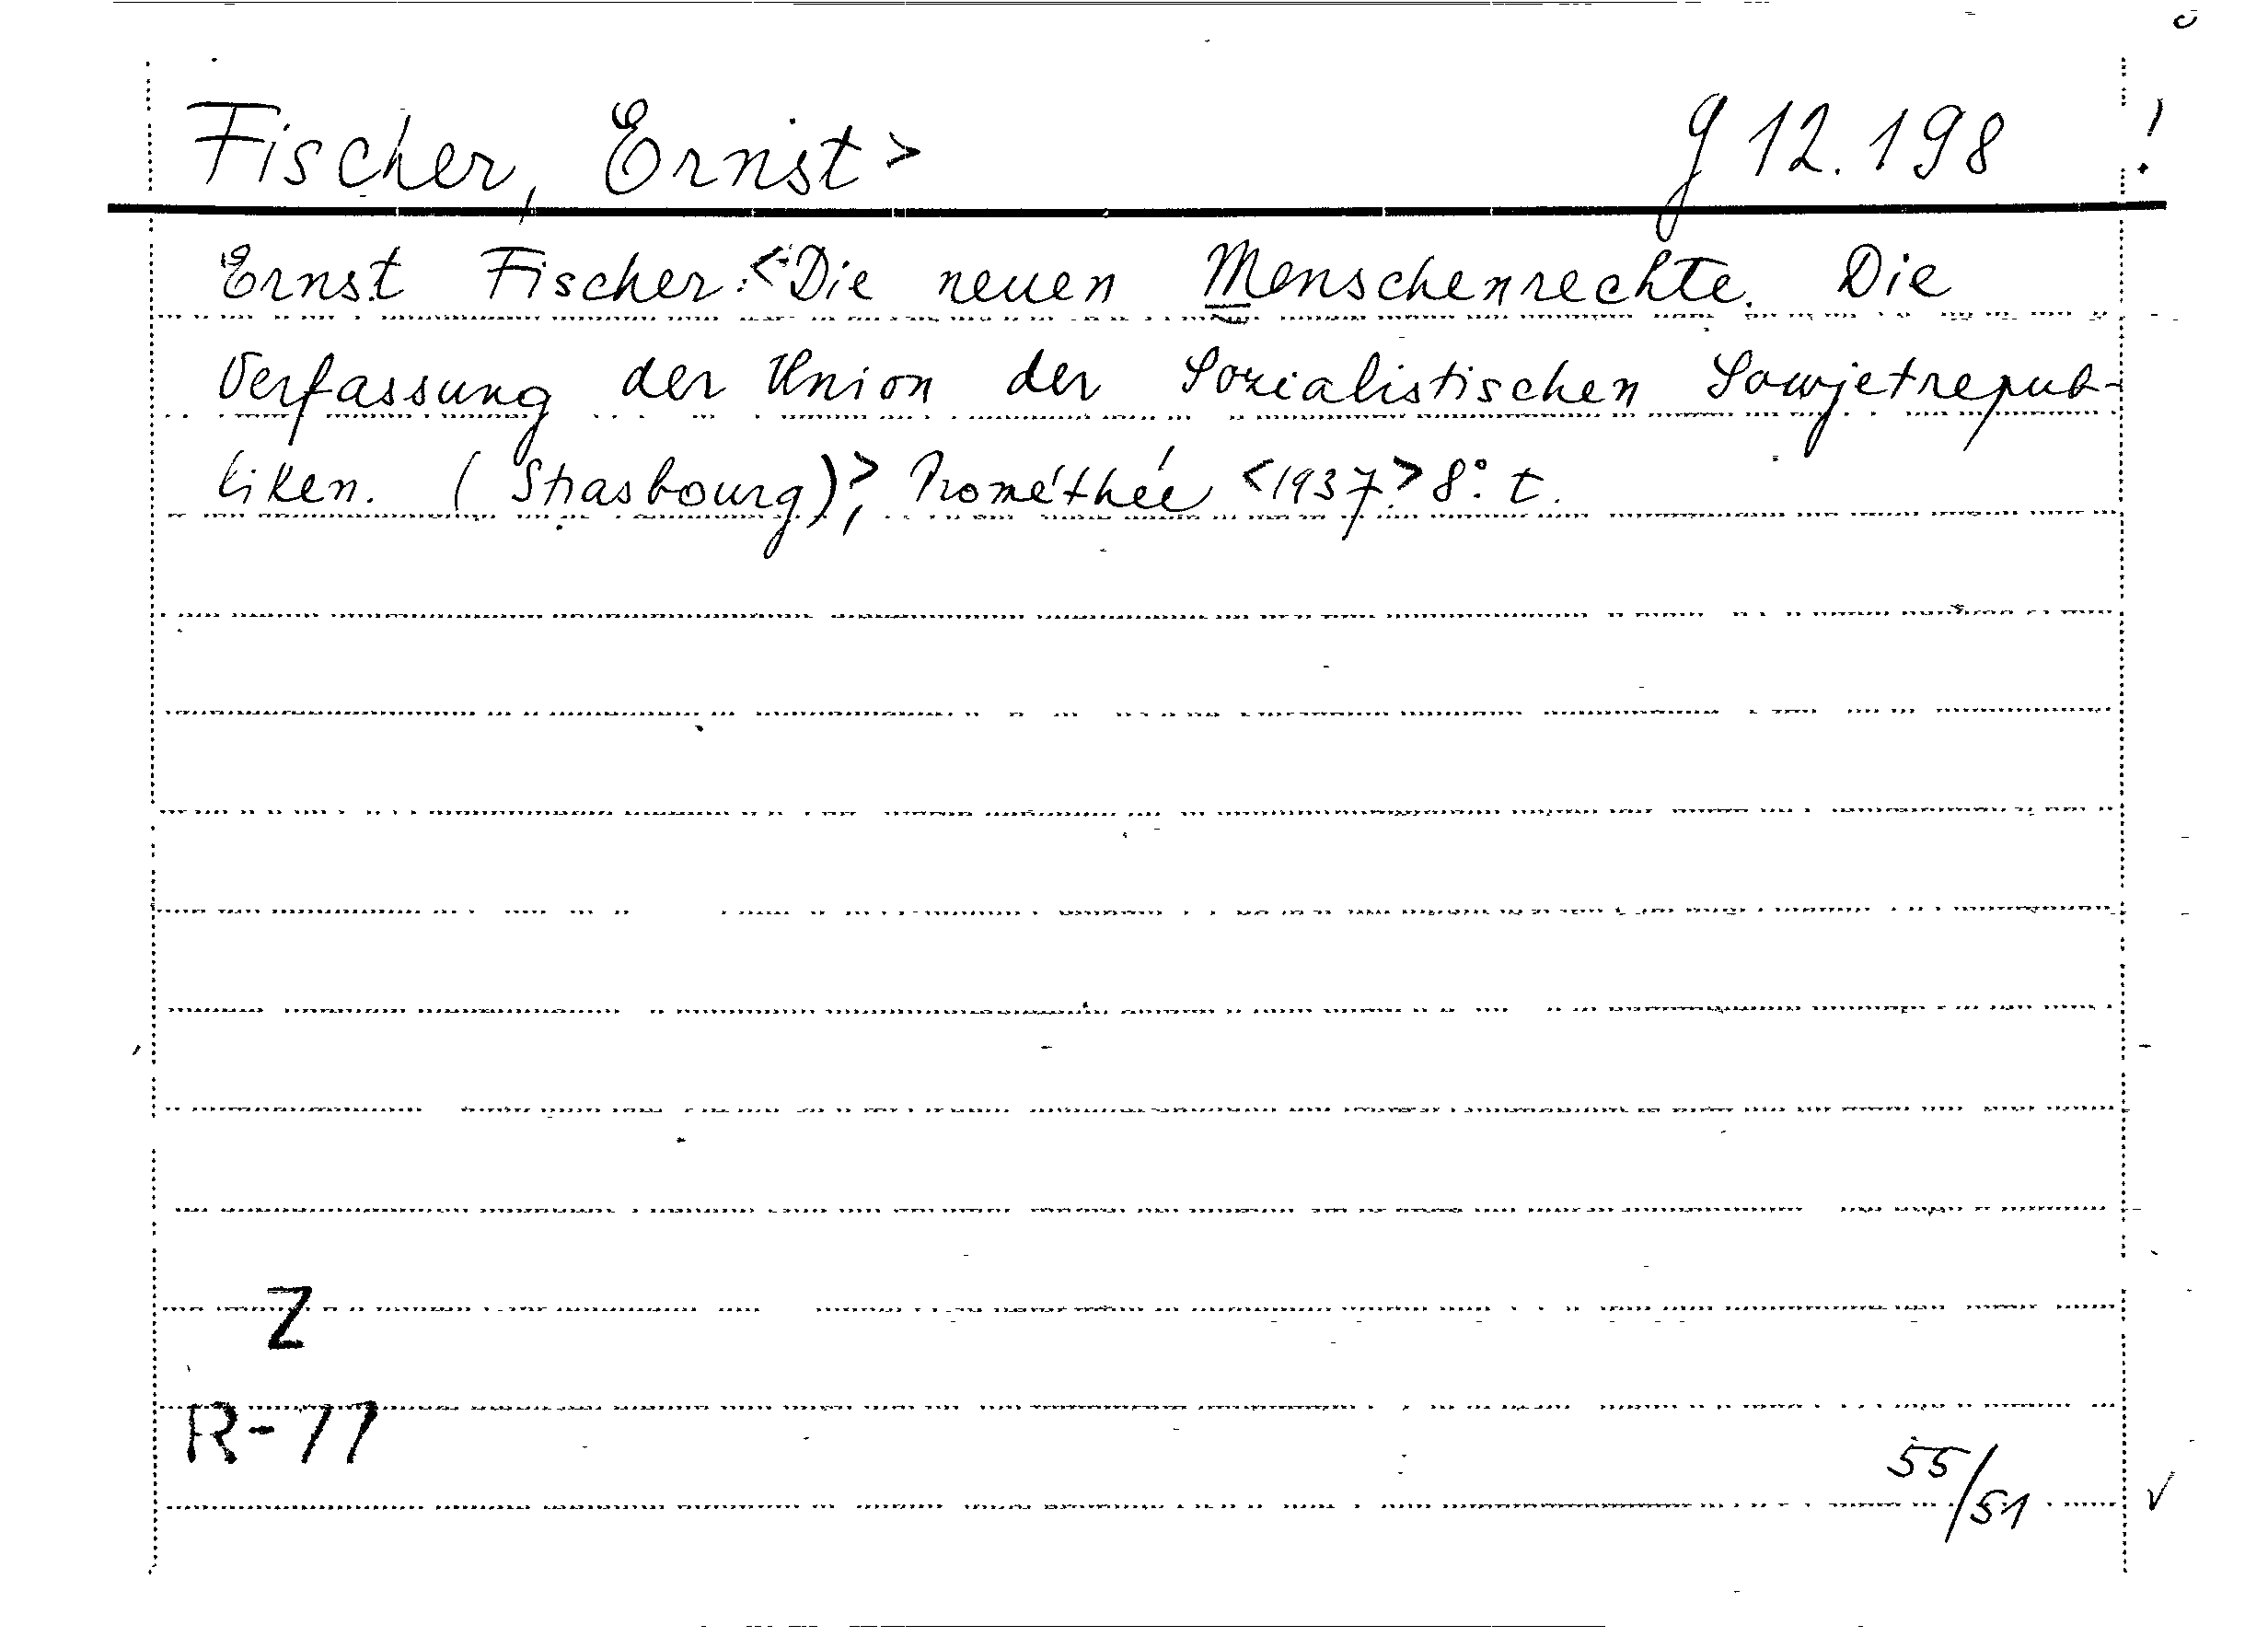 Fischer, Ernst> g 12.198 !
Ernst Fischer: <Die neuen Menschenrechte. Die
Verfassung der Union der Sozialistischen Sowjetrepub-
liken. (Strasbourg)>, Prométhée <1937> 8°. t.
Z
R-77
55/51 √